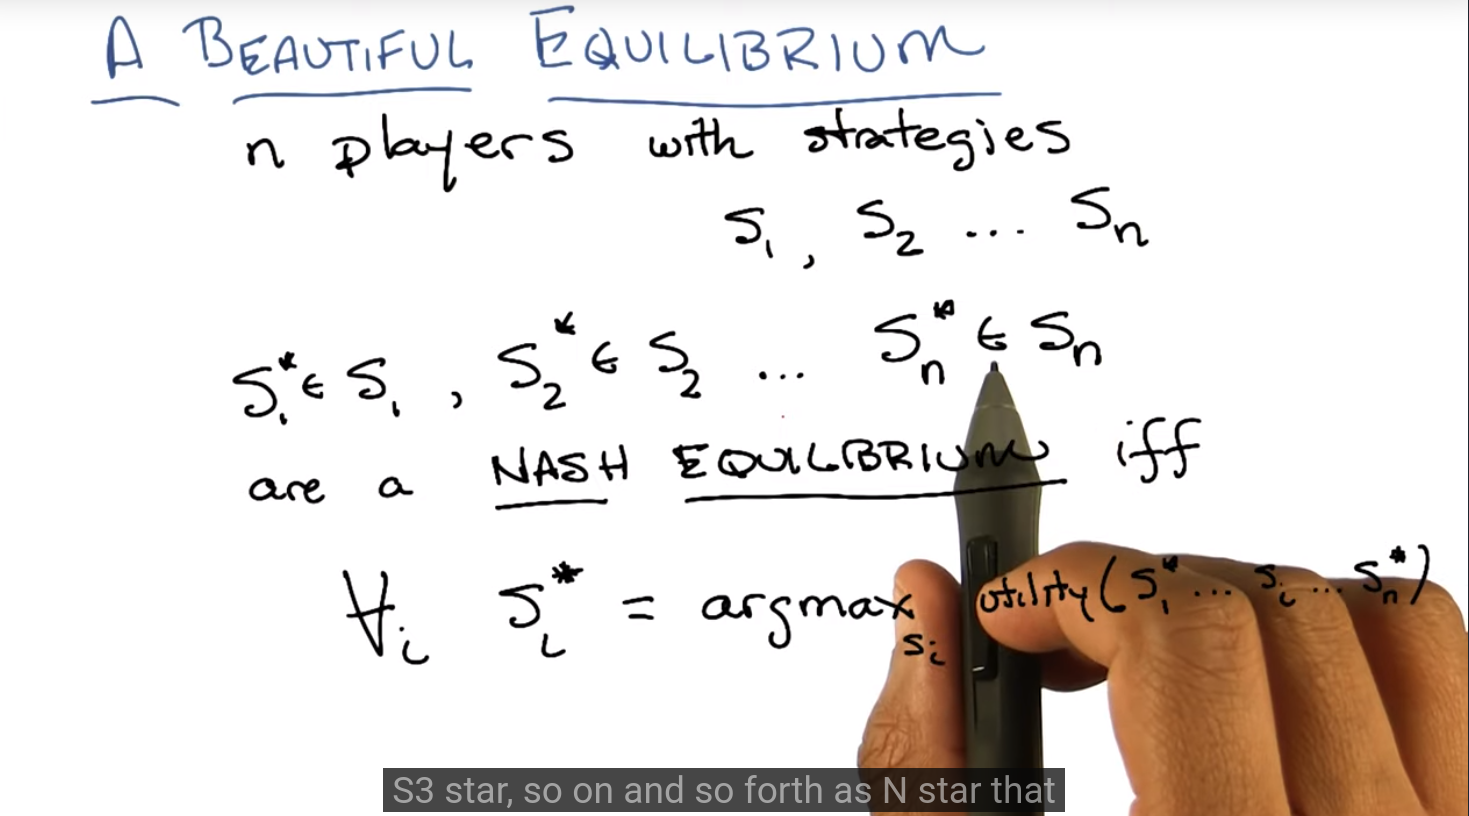 A BEAUTIFUL EQUILIBRIUM
n players with strategies
S₁, S₂ ... Sₙ
S₁* ∈ S₁, S₂* ∈ S₂ ... Sₙ* ∈ Sₙ
are a NASH EQUILBRIUM iff
∀ᵢ Sᵢ* = argmax_sᵢ utility(S₁* ... sᵢ ... Sₙ*)
S3 star, so on and so forth as N star that